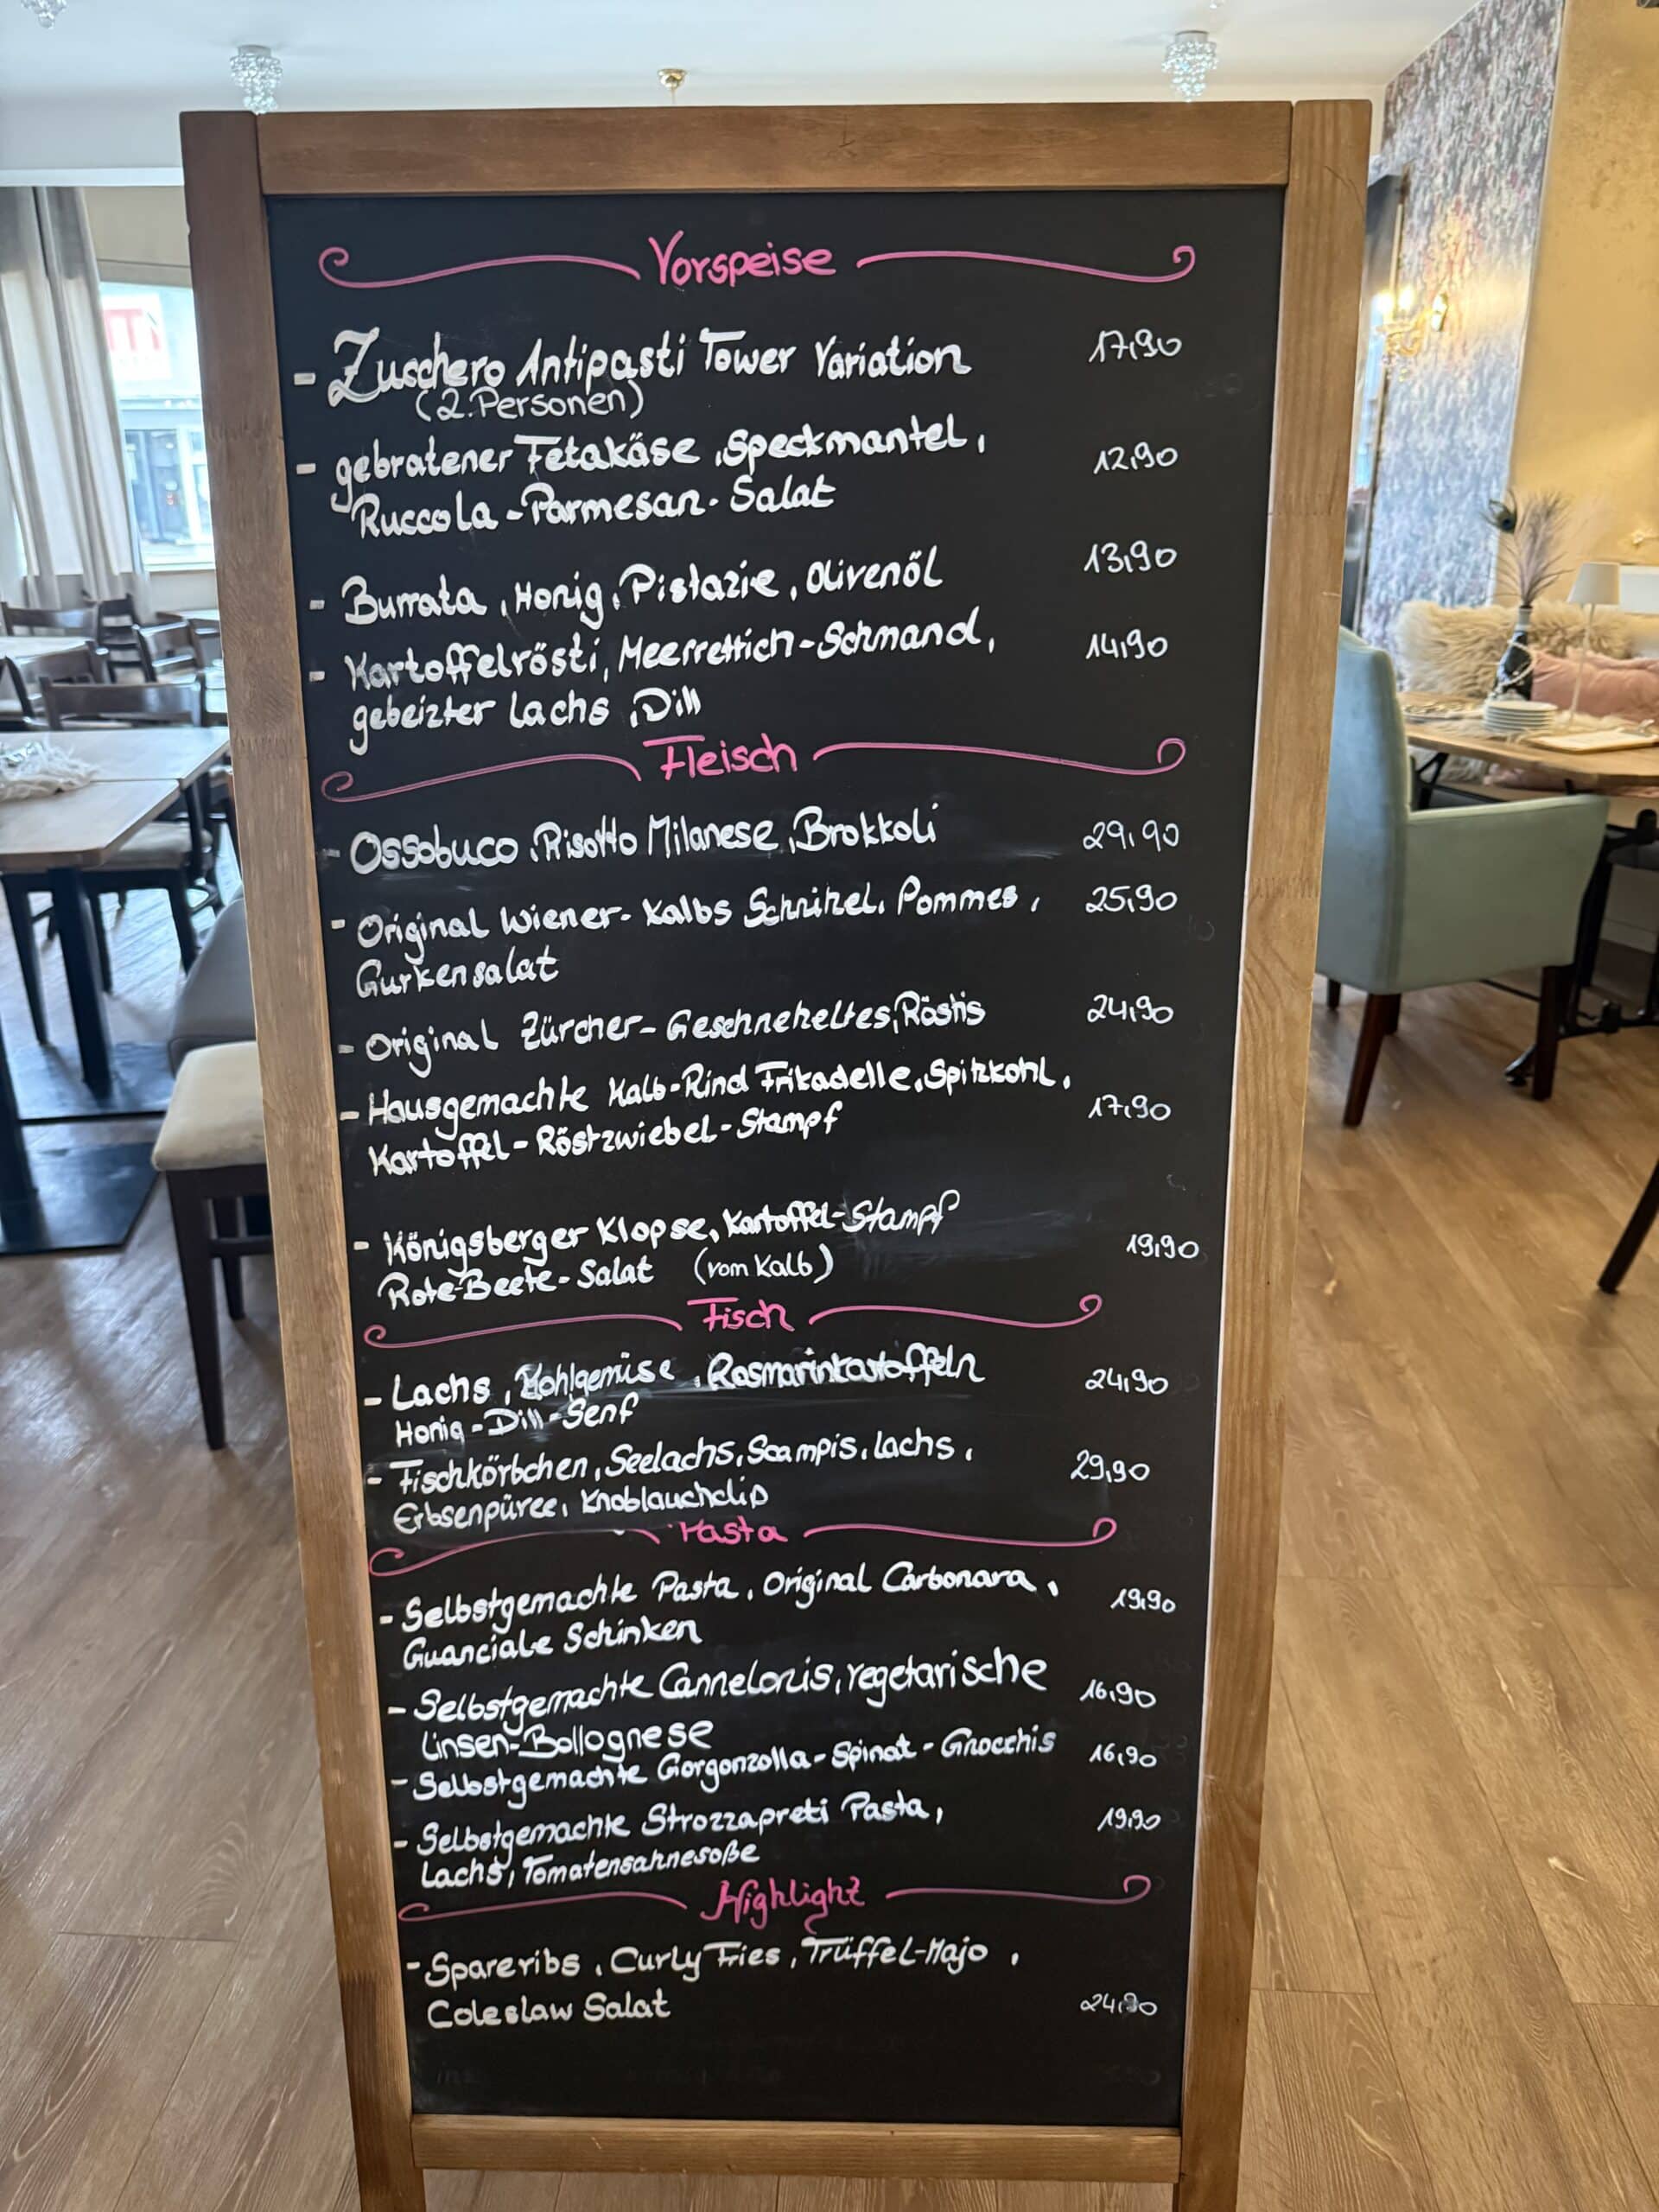 Vorspeise
- Zucchero Antipasti Tower Variation 17,90
(2.Personen)
- gebratener Fetakäse, Speckmantel, 12,90
Ruccola-Parmesan-Salat
- Burrata, Honig, Pistazie, Olivenöl 13,90
- Kartoffelrösti, Meerrettich-Schmand, 14,90
gebeizter Lachs, Dill
Fleisch
- Ossobuco, Risotto Milanese, Brokkoli 29,90
- Original Wiener-Kalbs Schnitzel, Pommes, 25,90
Gurkensalat
- Original Zürcher-Geschnetzeltes, Röstis 24,90
- Hausgemachte Kalb-Rind Frikadelle, Spitzkohl, 17,90
Kartoffel-Röstzwiebel-Stampf
- Königsberger Klopse, Kartoffel-Stampf 19,90
Rote-Beete-Salat (vom Kalb)
Fisch
- Lachs, Kohlgemüse, Rosmarinkartoffeln 24,90
Honig-Dill-Senf
- Fischkörbchen, Seelachs, Scampis, Lachs, 29,90
Erbsenpüree, Knoblauchdip
Pasta
- Selbstgemachte Pasta, Original Carbonara, 19,90
Guanciale Schinken
- Selbstgemachte Cannelonis, vegetarische 16,90
Linsen-Bollognese
- Selbstgemachte Gorgonzolla-Spinat-Gnocchis 16,90
- Selbstgemachte Strozzapreti Pasta, 19,90
Lachs, Tomatensahnesoße
Highlight
- Spareribs, Curly Fries, Trüffel-Majo,
Coleslaw Salat 24,90